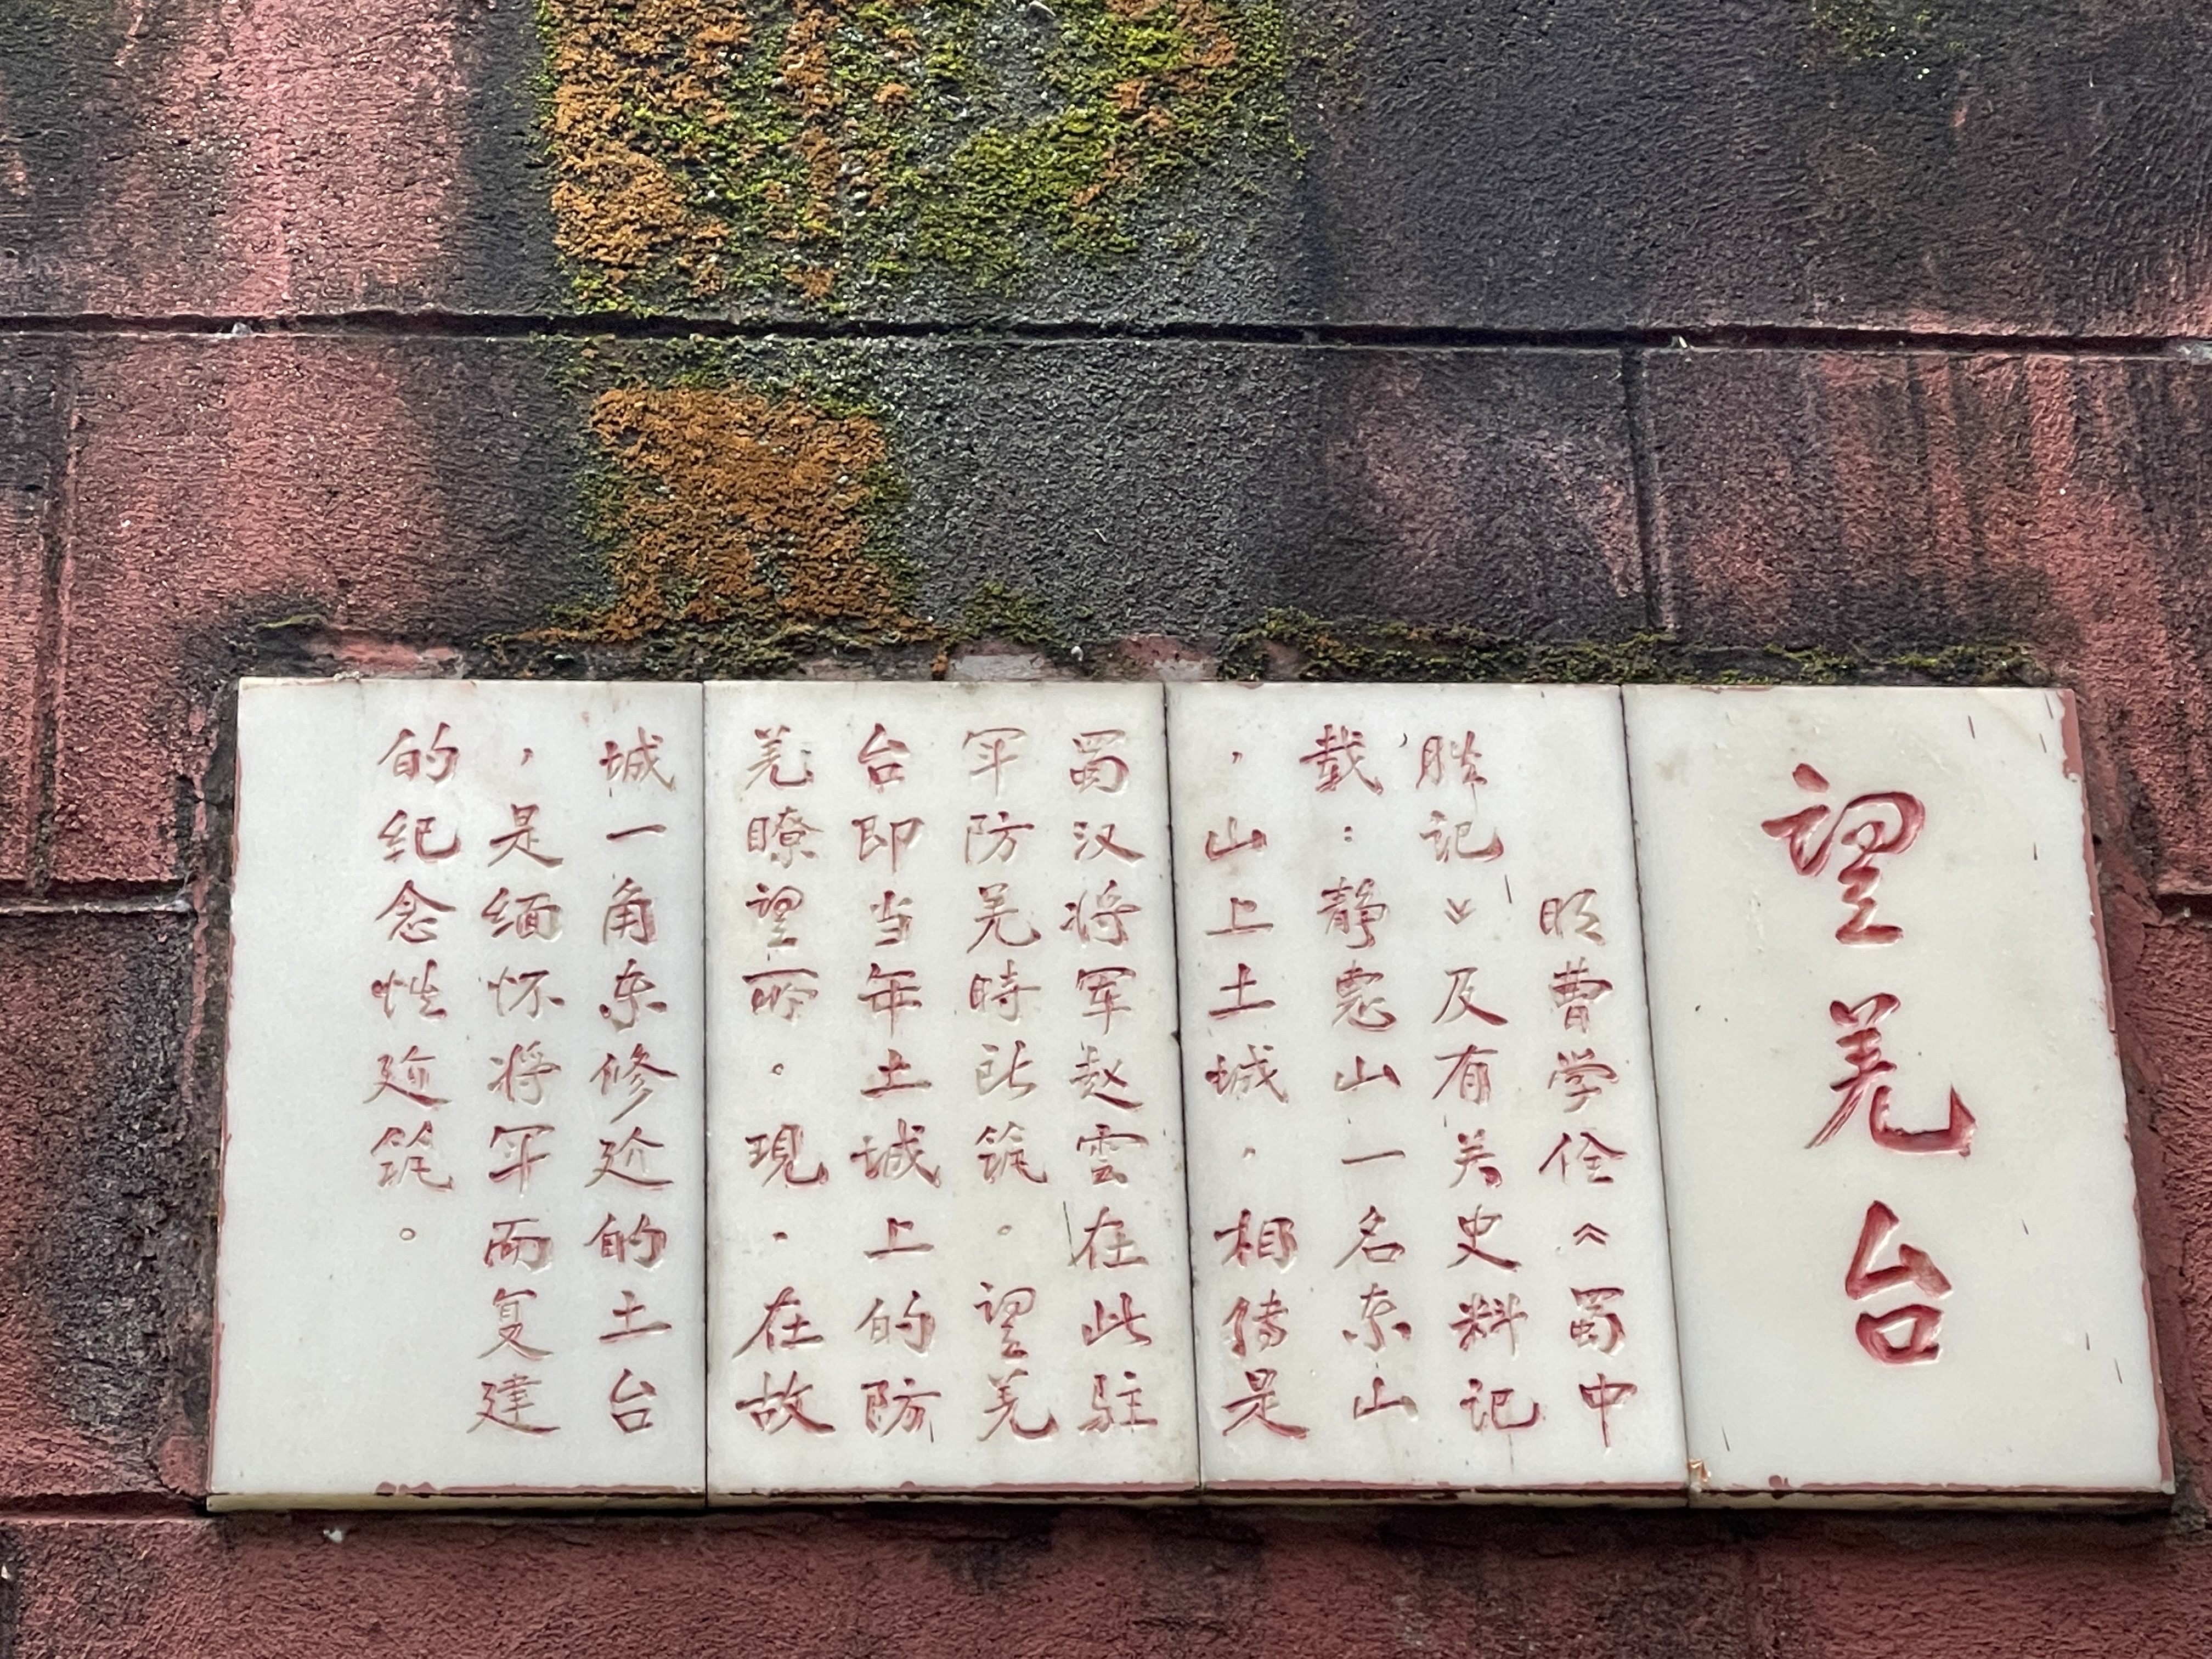 望羌台
明曹学佺《蜀中
胜记》及有关史料记
载：静惠山一名东山
，山上土城，相传是
蜀汉将军赵雲在此驻
军防羌時所筑。望羌
台即当年土城上的防
羌瞭望所。現，在故
城一角东修建的土台
，是缅怀将军而复建
的纪念性建筑。